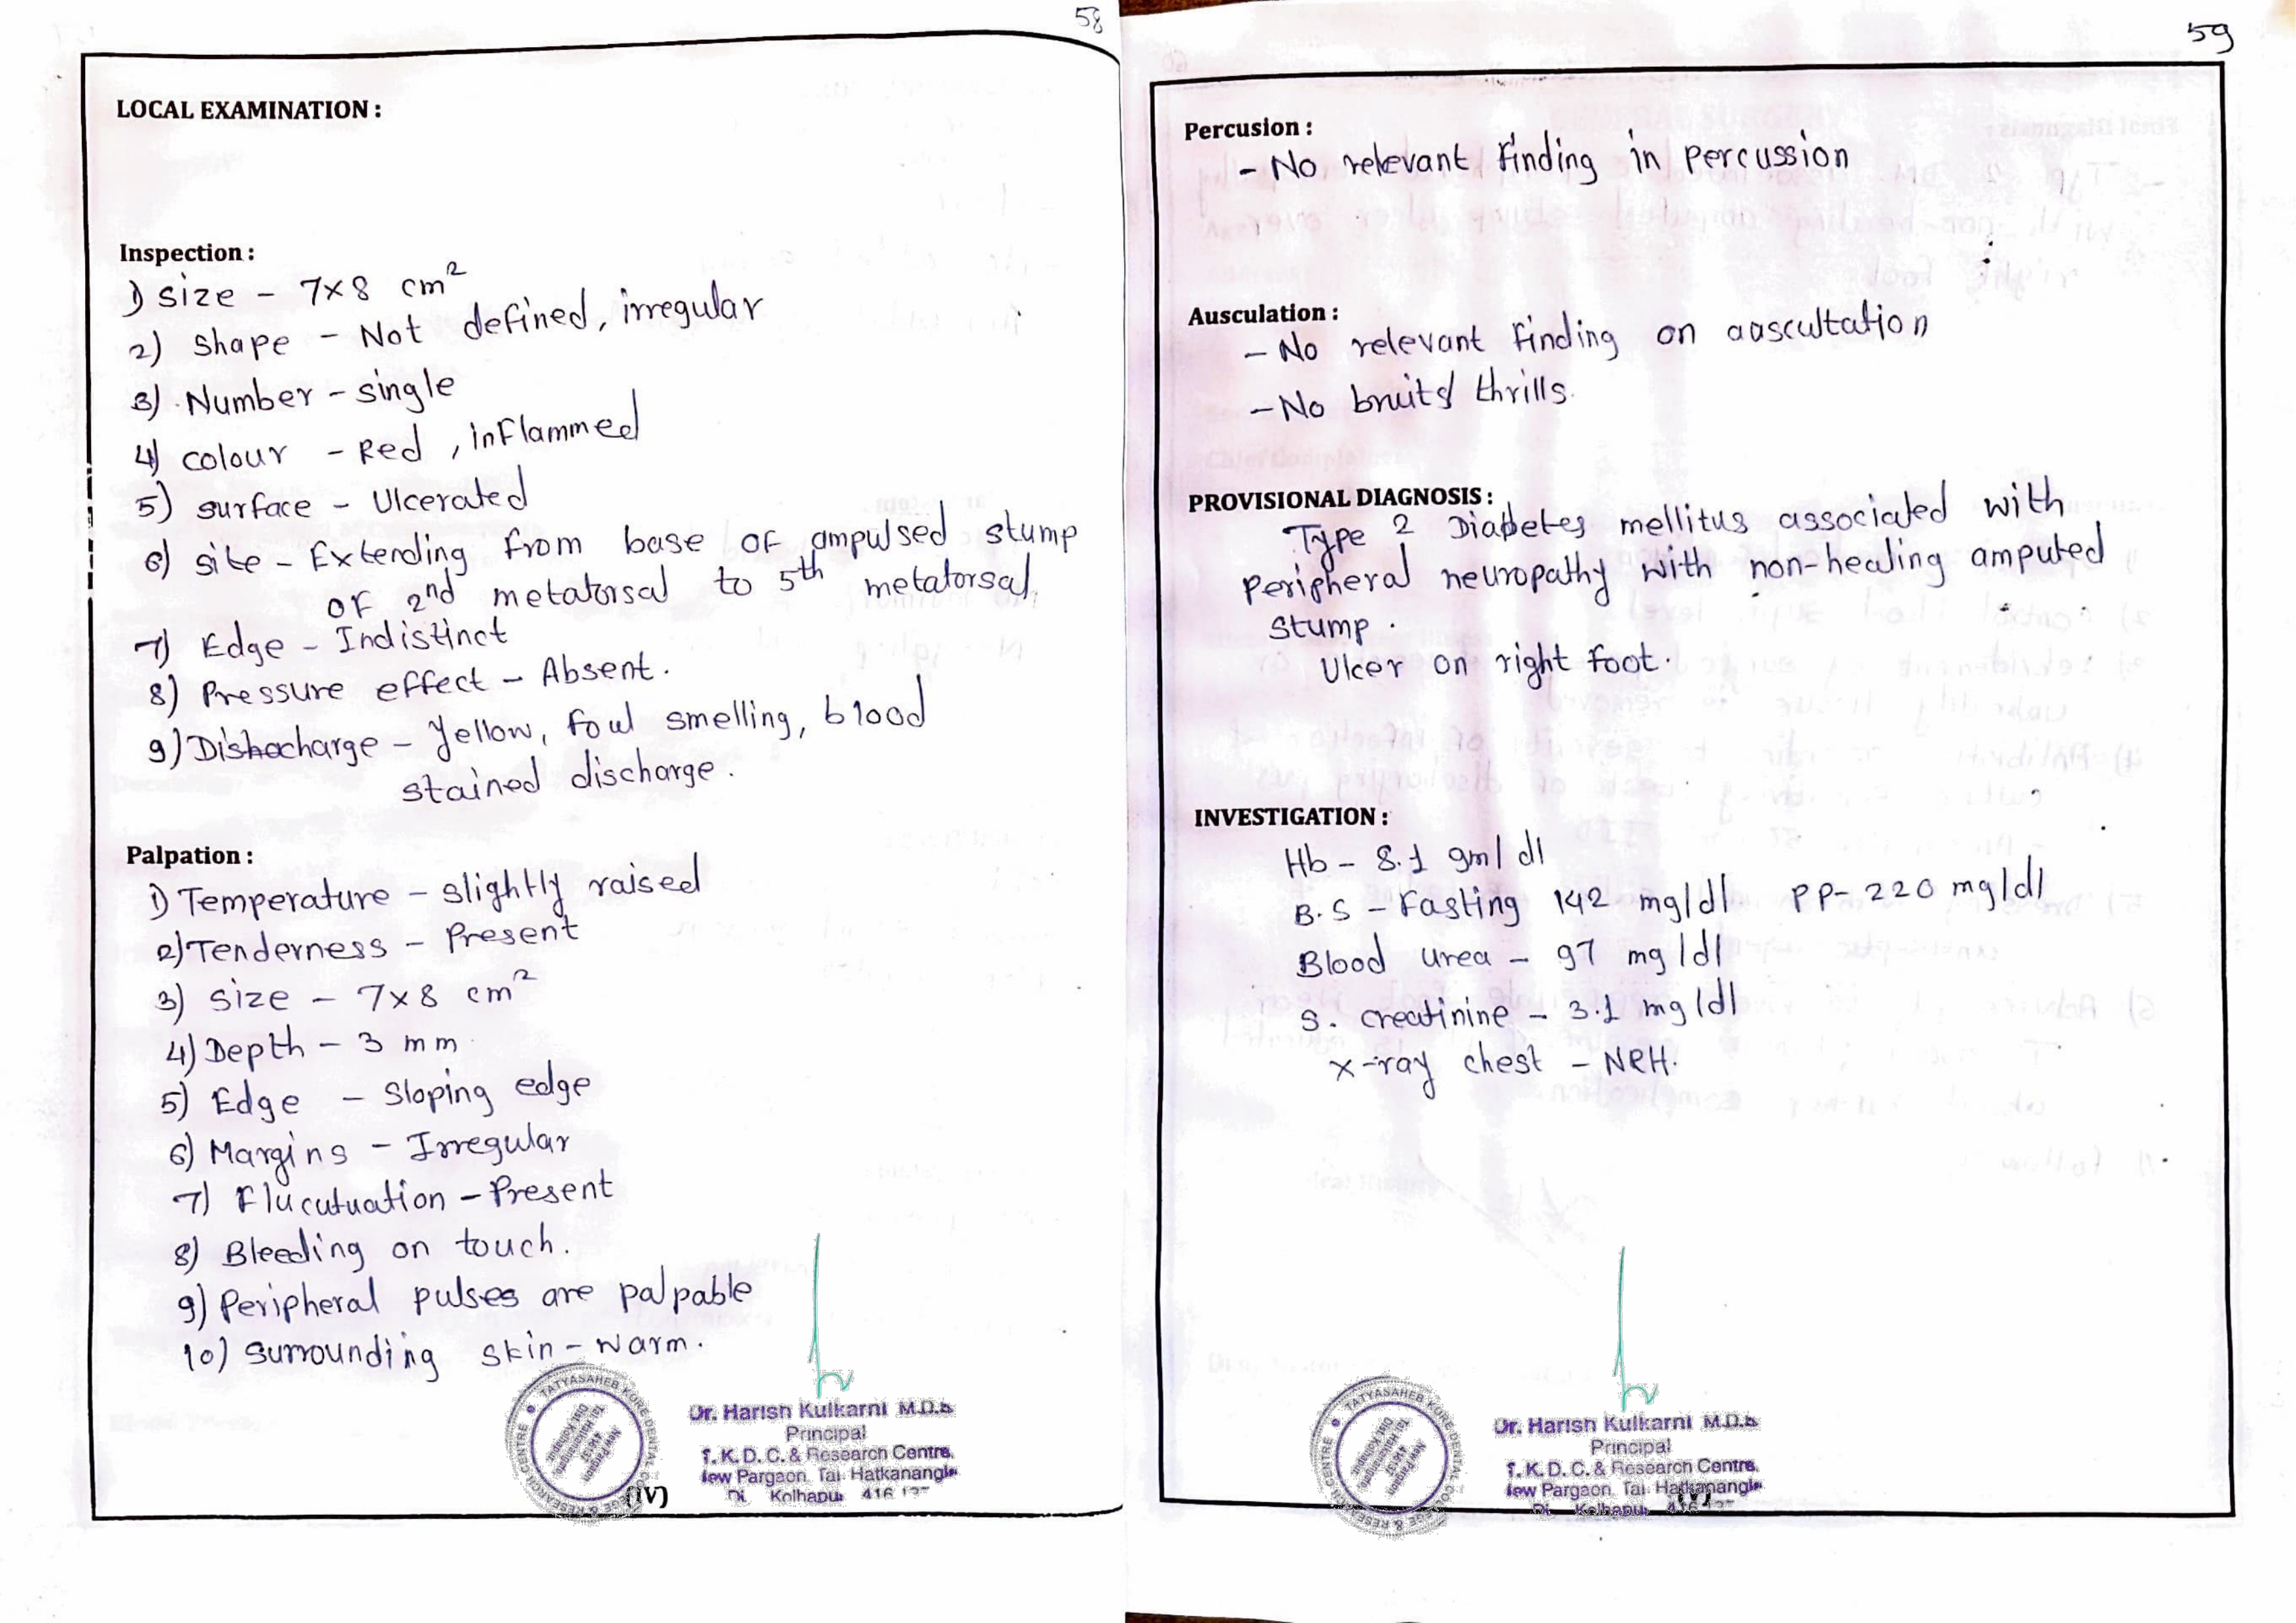 58
LOCAL EXAMINATION :
Inspection :
1) size - 7x8 cm²
2) shape - Not defined, irregular
3) Number - single
4) colour - Red, inflammed
5) surface - Ulcerated
6) site - Extending from base of ampulsed stump
of 2nd metatorsal to 5th metatorsal.
7) Edge - Indistinct
8) Pressure effect - Absent.
9) Dishocharge - Yellow, foul smelling, blood
stained discharge.
Palpation :
1) Temperature - slightly raised
2) Tenderness - Present
3) size - 7x8 cm²
4) Depth - 3 mm
5) Edge - Sloping edge
6) Margins - Irregular
7) Flucutuation - Present
8) Bleeding on touch.
9) Peripheral pulses are palpable
10) Surrounding skin - warm.
TATYASAHEB KORE DENTAL COLLEGE & RESEARCH CENTRE
Dr. Harish Kulkarni M.D.S
Principal
T. K. D. C. & Research Centre,
New Pargaon, Tal. Hatkanangle
Di. Kolhapur 416 137
(IV)
59
Percusion :
- No relevant finding in percussion
Ausculation :
- No relevant finding on aascultation
- No bruits/ thrills.
PROVISIONAL DIAGNOSIS :
Type 2 Diabetes mellitus associated with
peripheral neuropathy with non-healing amputed
stump.
Ulcer on right foot.
INVESTIGATION :
Hb - 8.1 gm/dl
B.S - Fasting 142 mg/dl PP- 220 mg/dl
Blood urea - 97 mg/dl
S. creatinine - 3.1 mg/dl
x-ray chest - NRH.
TATYASAHEB KORE DENTAL COLLEGE & RESEARCH CENTRE
Dr. Harish Kulkarni M.D.S
Principal
T. K. D. C. & Research Centre,
New Pargaon, Tal. Hatkanangle
Di. Kolhapur